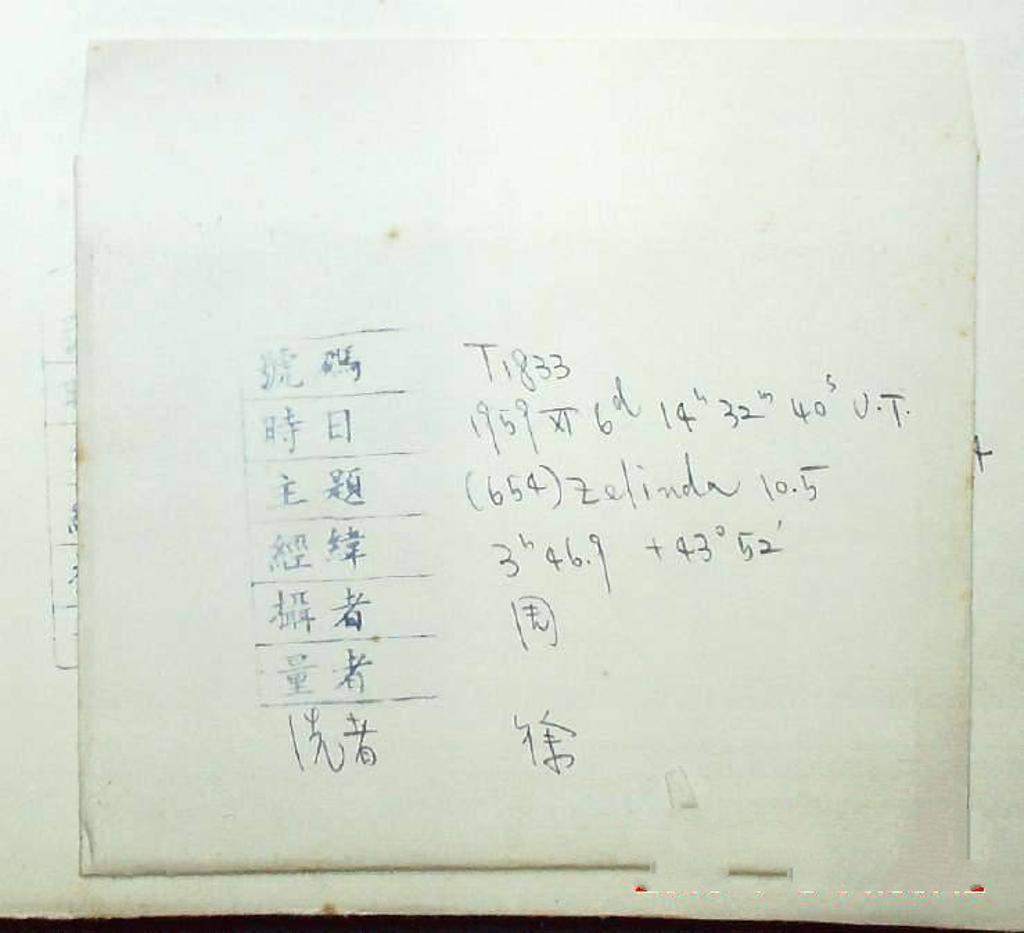 號碼 T1833
時日 1959 XI 6ᵈ 14ʰ 32ᵐ 40ˢ U.T.
主題 (654) Zelinda 10.5
經緯 3ʰ 46.9 +43° 52'
攝者 周
量者
洗者 徐